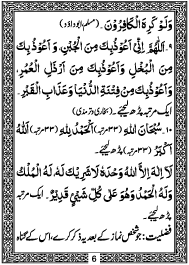 وَلَوْ كَرِهَ الْكَافِرُوْنَ۔ (مسلم، ابوداؤد)
۹۔ اَللّٰهُمَّ اِنِّیْ اَعُوْذُبِكَ مِنَ الْجُبْنِ، وَ اَعُوْذُبِكَ
مِنَ الْبُخْلِ وَ اَعُوْذُبِكَ مِنْ اَرْذَلِ الْعُمُرِ،
وَ اَعُوْذُبِكَ مِنْ فِتْنَةِ الدُّنْيَا وَ عَذَابِ الْقَبْرِ۔
ایک مرتبہ پڑھ لیجئے۔ (بخاری و ترمذی)
۱۰۔ سُبْحَانَ اللّٰهِ (۳۳ مرتبہ) اَلْحَمْدُ لِلّٰهِ (۳۳ مرتبہ) اَللّٰهُ
اَكْبَرُ (۳۳ مرتبہ) پڑھ لیجئے۔
لَا اِلٰهَ اِلَّا اللّٰهُ وَحْدَهٗ لَا شَرِيْكَ لَهٗ، لَهُ الْمُلْكُ
وَلَهُ الْحَمْدُ وَهُوَ عَلٰی كُلِّ شَیْئٍ قَدِيْرٌ۔ ایک مرتبہ
پڑھ لیجئے۔
فضلیت: جو شخص نماز کے بعد یہ ذکر کرے، اس کے گناہ
6